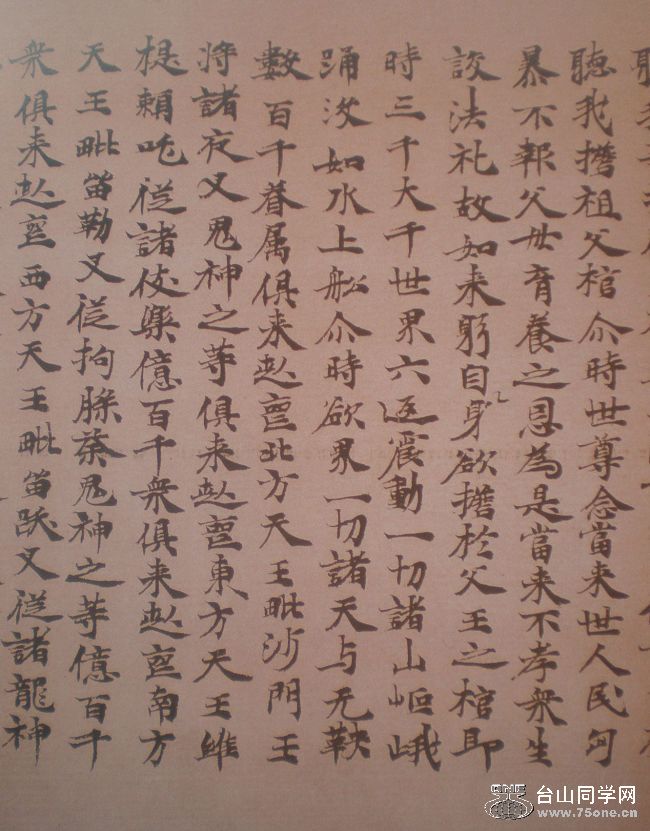 聽我擔祖父棺尒時世尊念當来世人民匈
暴不報父母育養之恩為是當来不孝衆生
設法礼故如来躬自身欲擔於父王之棺即
時三千大千世界六返震動一切諸山岠峨
踊没如水上舩尒時欲界一切諸天与无鞅
數百千眷属俱来赴䘮北方天王毗沙門王
将諸夜叉鬼神之等俱来赴䘮東方天王維
提頼吒從諸伎樂億百千衆俱来赴䘮南方
天王毗留勒叉從拘腅荼鬼神之等億百千
衆俱来赴䘮西方天王毗留跃叉從諸龍神
台山同学网
www.75one.cn